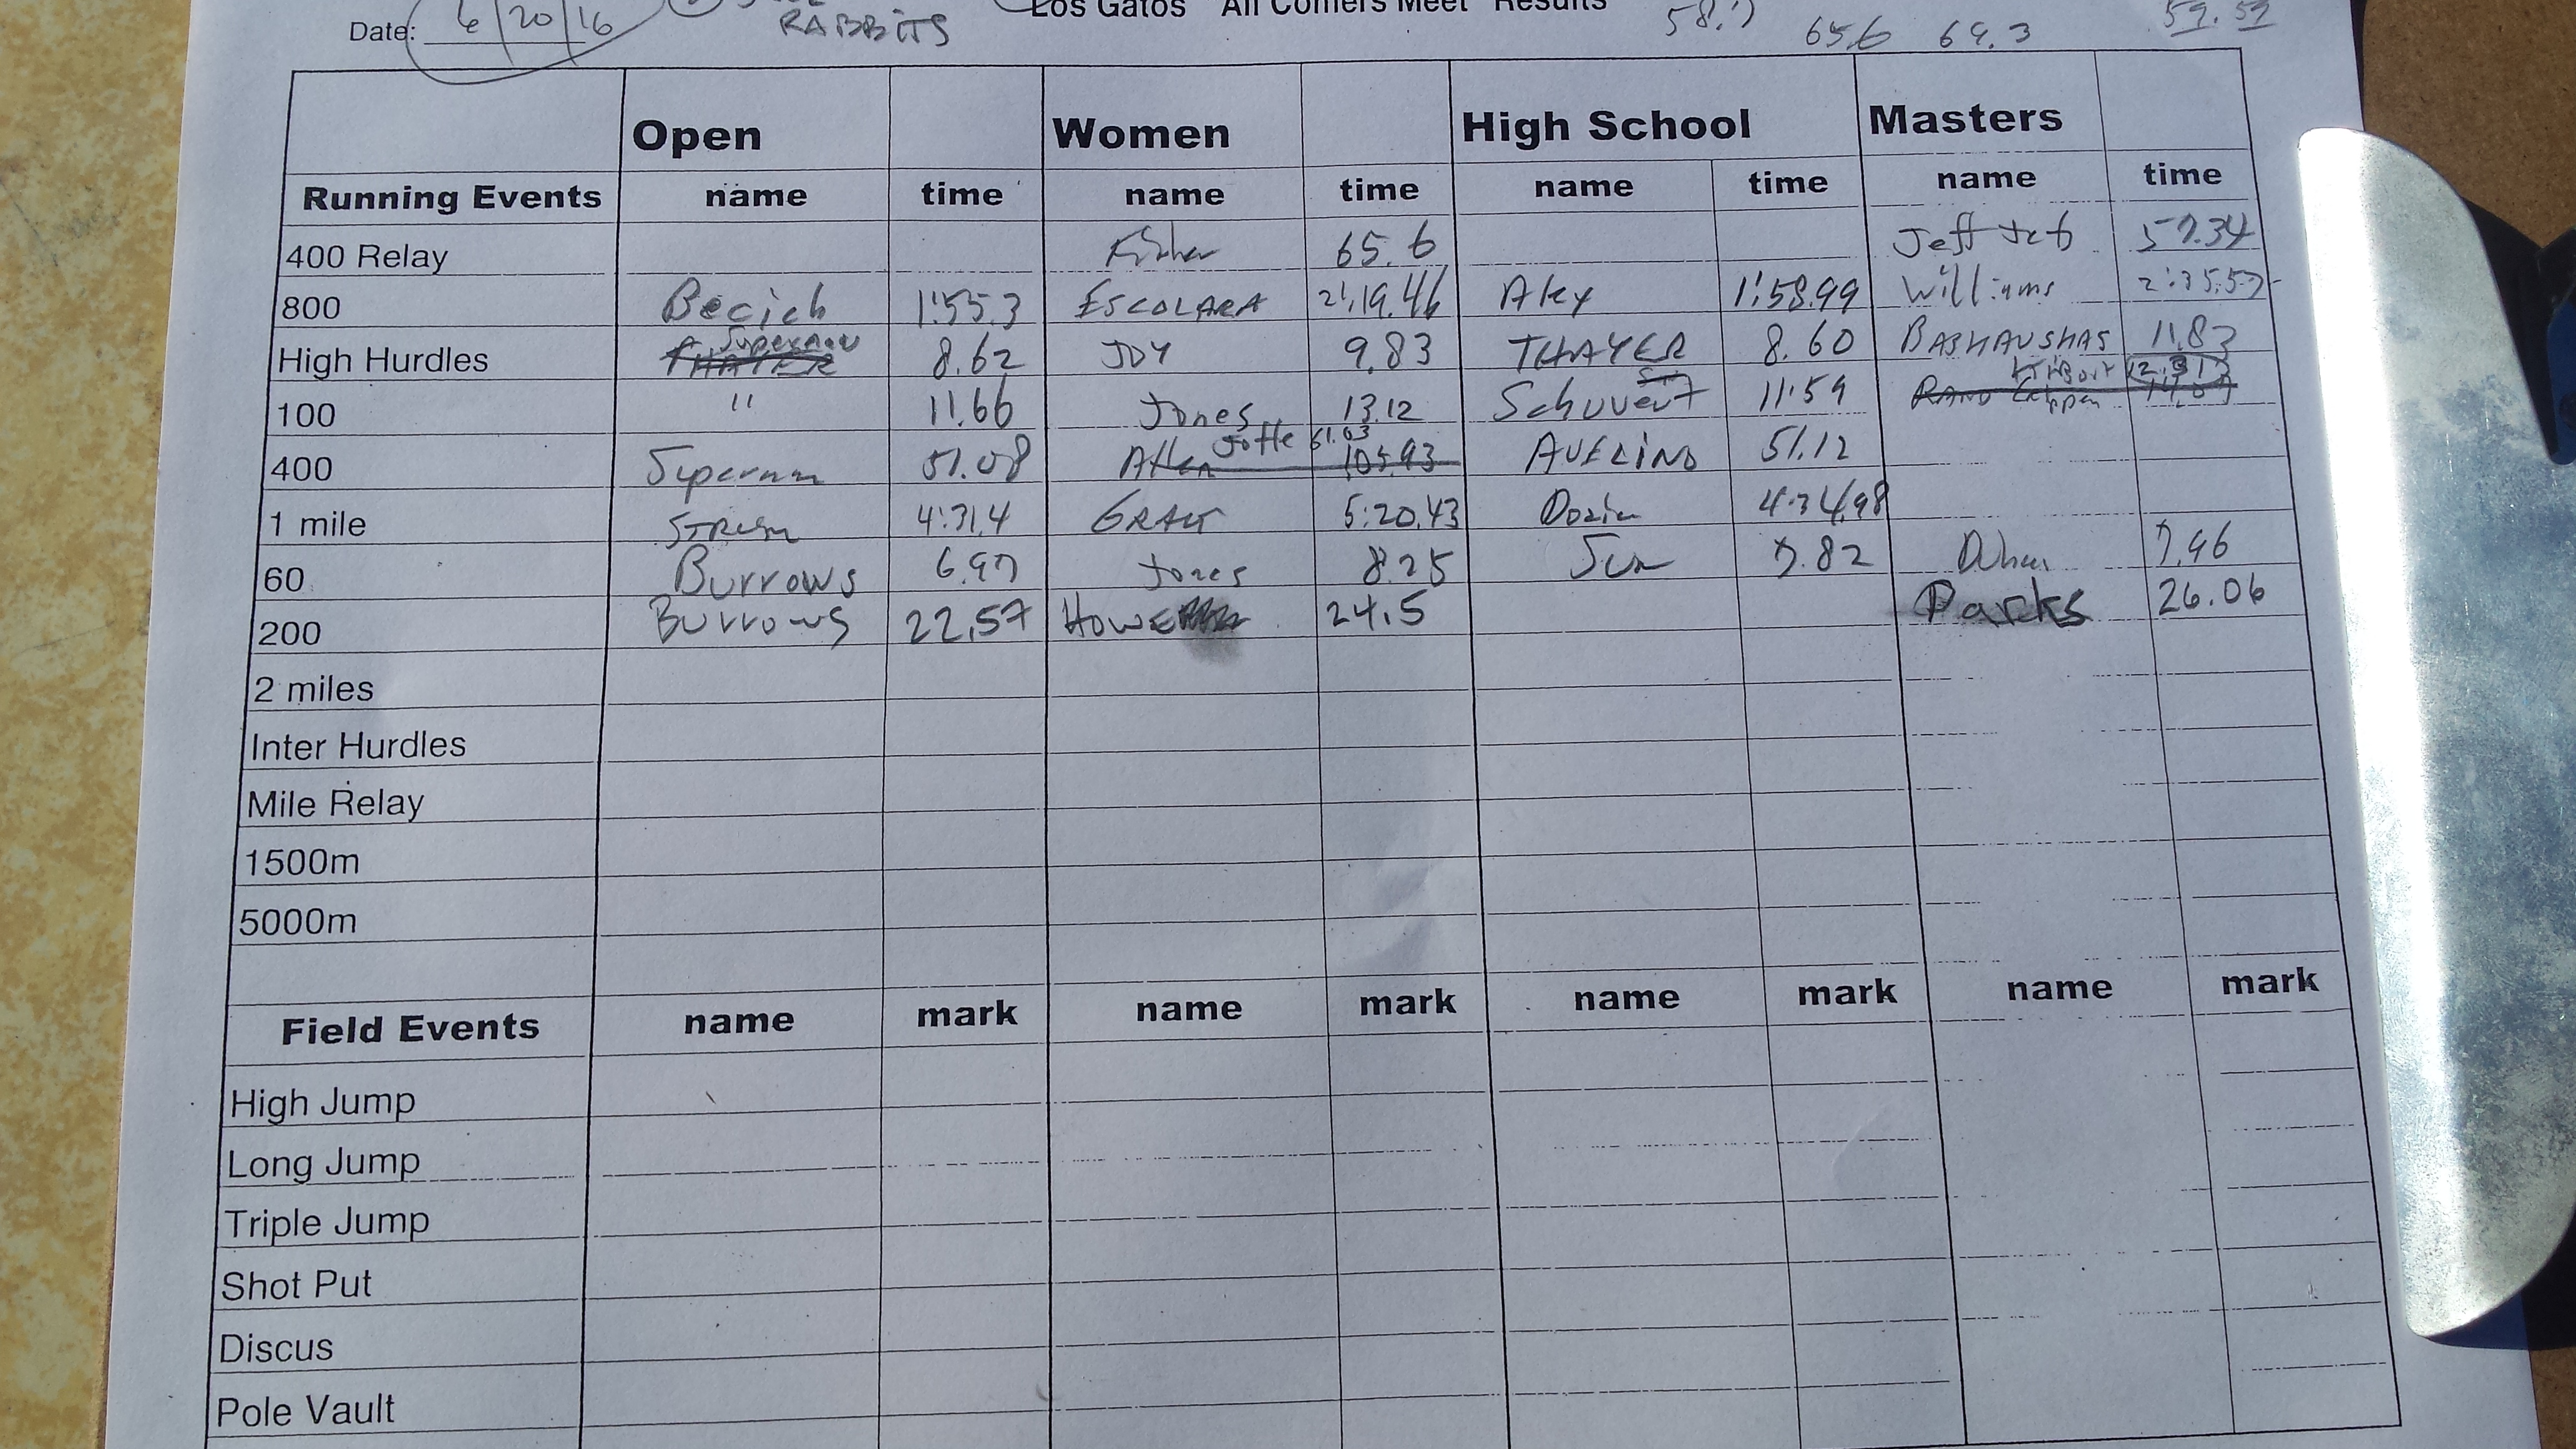 Los Gatos All Comers Meet Results
Date: 6/20/16
RABBITS
65.6 69.3
Open Women High School Masters
Running Events name time name time name time name time
400 Relay 65.6 Jeff 57.34
800 Becich 1:55.3 ESCOLARA 2:19.46 Aky 1:58.99 Williams
High Hurdles 8.62 JOY 9.83 THAYER 8.60 BASHAUSHAS 11.83
100 " 11.66 Jones 13.12 11:59
400 51.08 Joffe 61.03 AVELINO 51.12
1 mile 4:31.4 5:20.43 4:34.98
60 Burrows 6.97 Jones 8.25 7.82 7.96
200 Burrows 22.57 HOWE 24.5 Parks 26.06
2 miles
Inter Hurdles
Mile Relay
1500m
5000m
Field Events name mark name mark name mark name mark
High Jump
Long Jump
Triple Jump
Shot Put
Discus
Pole Vault